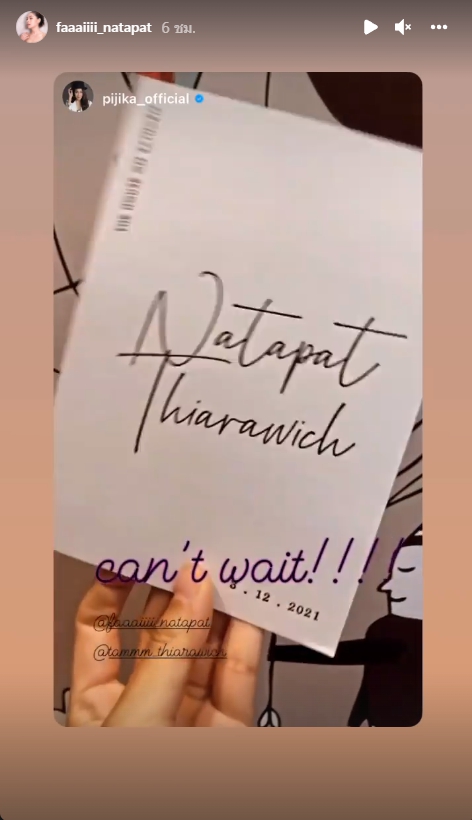 faaaiiii_natapat 6 ชม.
pijika_official
Natapat
Thiarawich
can't wait!!!!
3 . 12 . 2021
@faaaiiii_natapat
@tammm.thiarawich